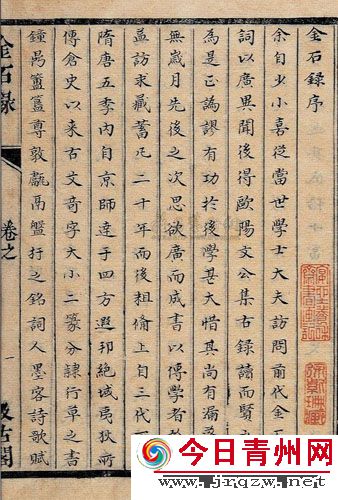 金石錄序
余自少小喜從當世學士大夫訪問前代金石
詞以廣異聞後得歐陽文公集古錄讀而賢
為是正譌謬有功於後學甚大惜其尚有漏
無歲月先後之次思欲廣而成書以傳學者
益訪求藏蓄凡二十年而後粗備上自三代
隋唐五季內自京師達于四方遐邦絕域夷狄所
傳倉史以來古文奇字大小二篆分隸行草之書
鐘鼎簠簋尊敦甗鬲盤杅之銘詞人墨客詩歌賦
金石錄
卷之
一
汲古閣
今日青州网
www.jrqzw.net